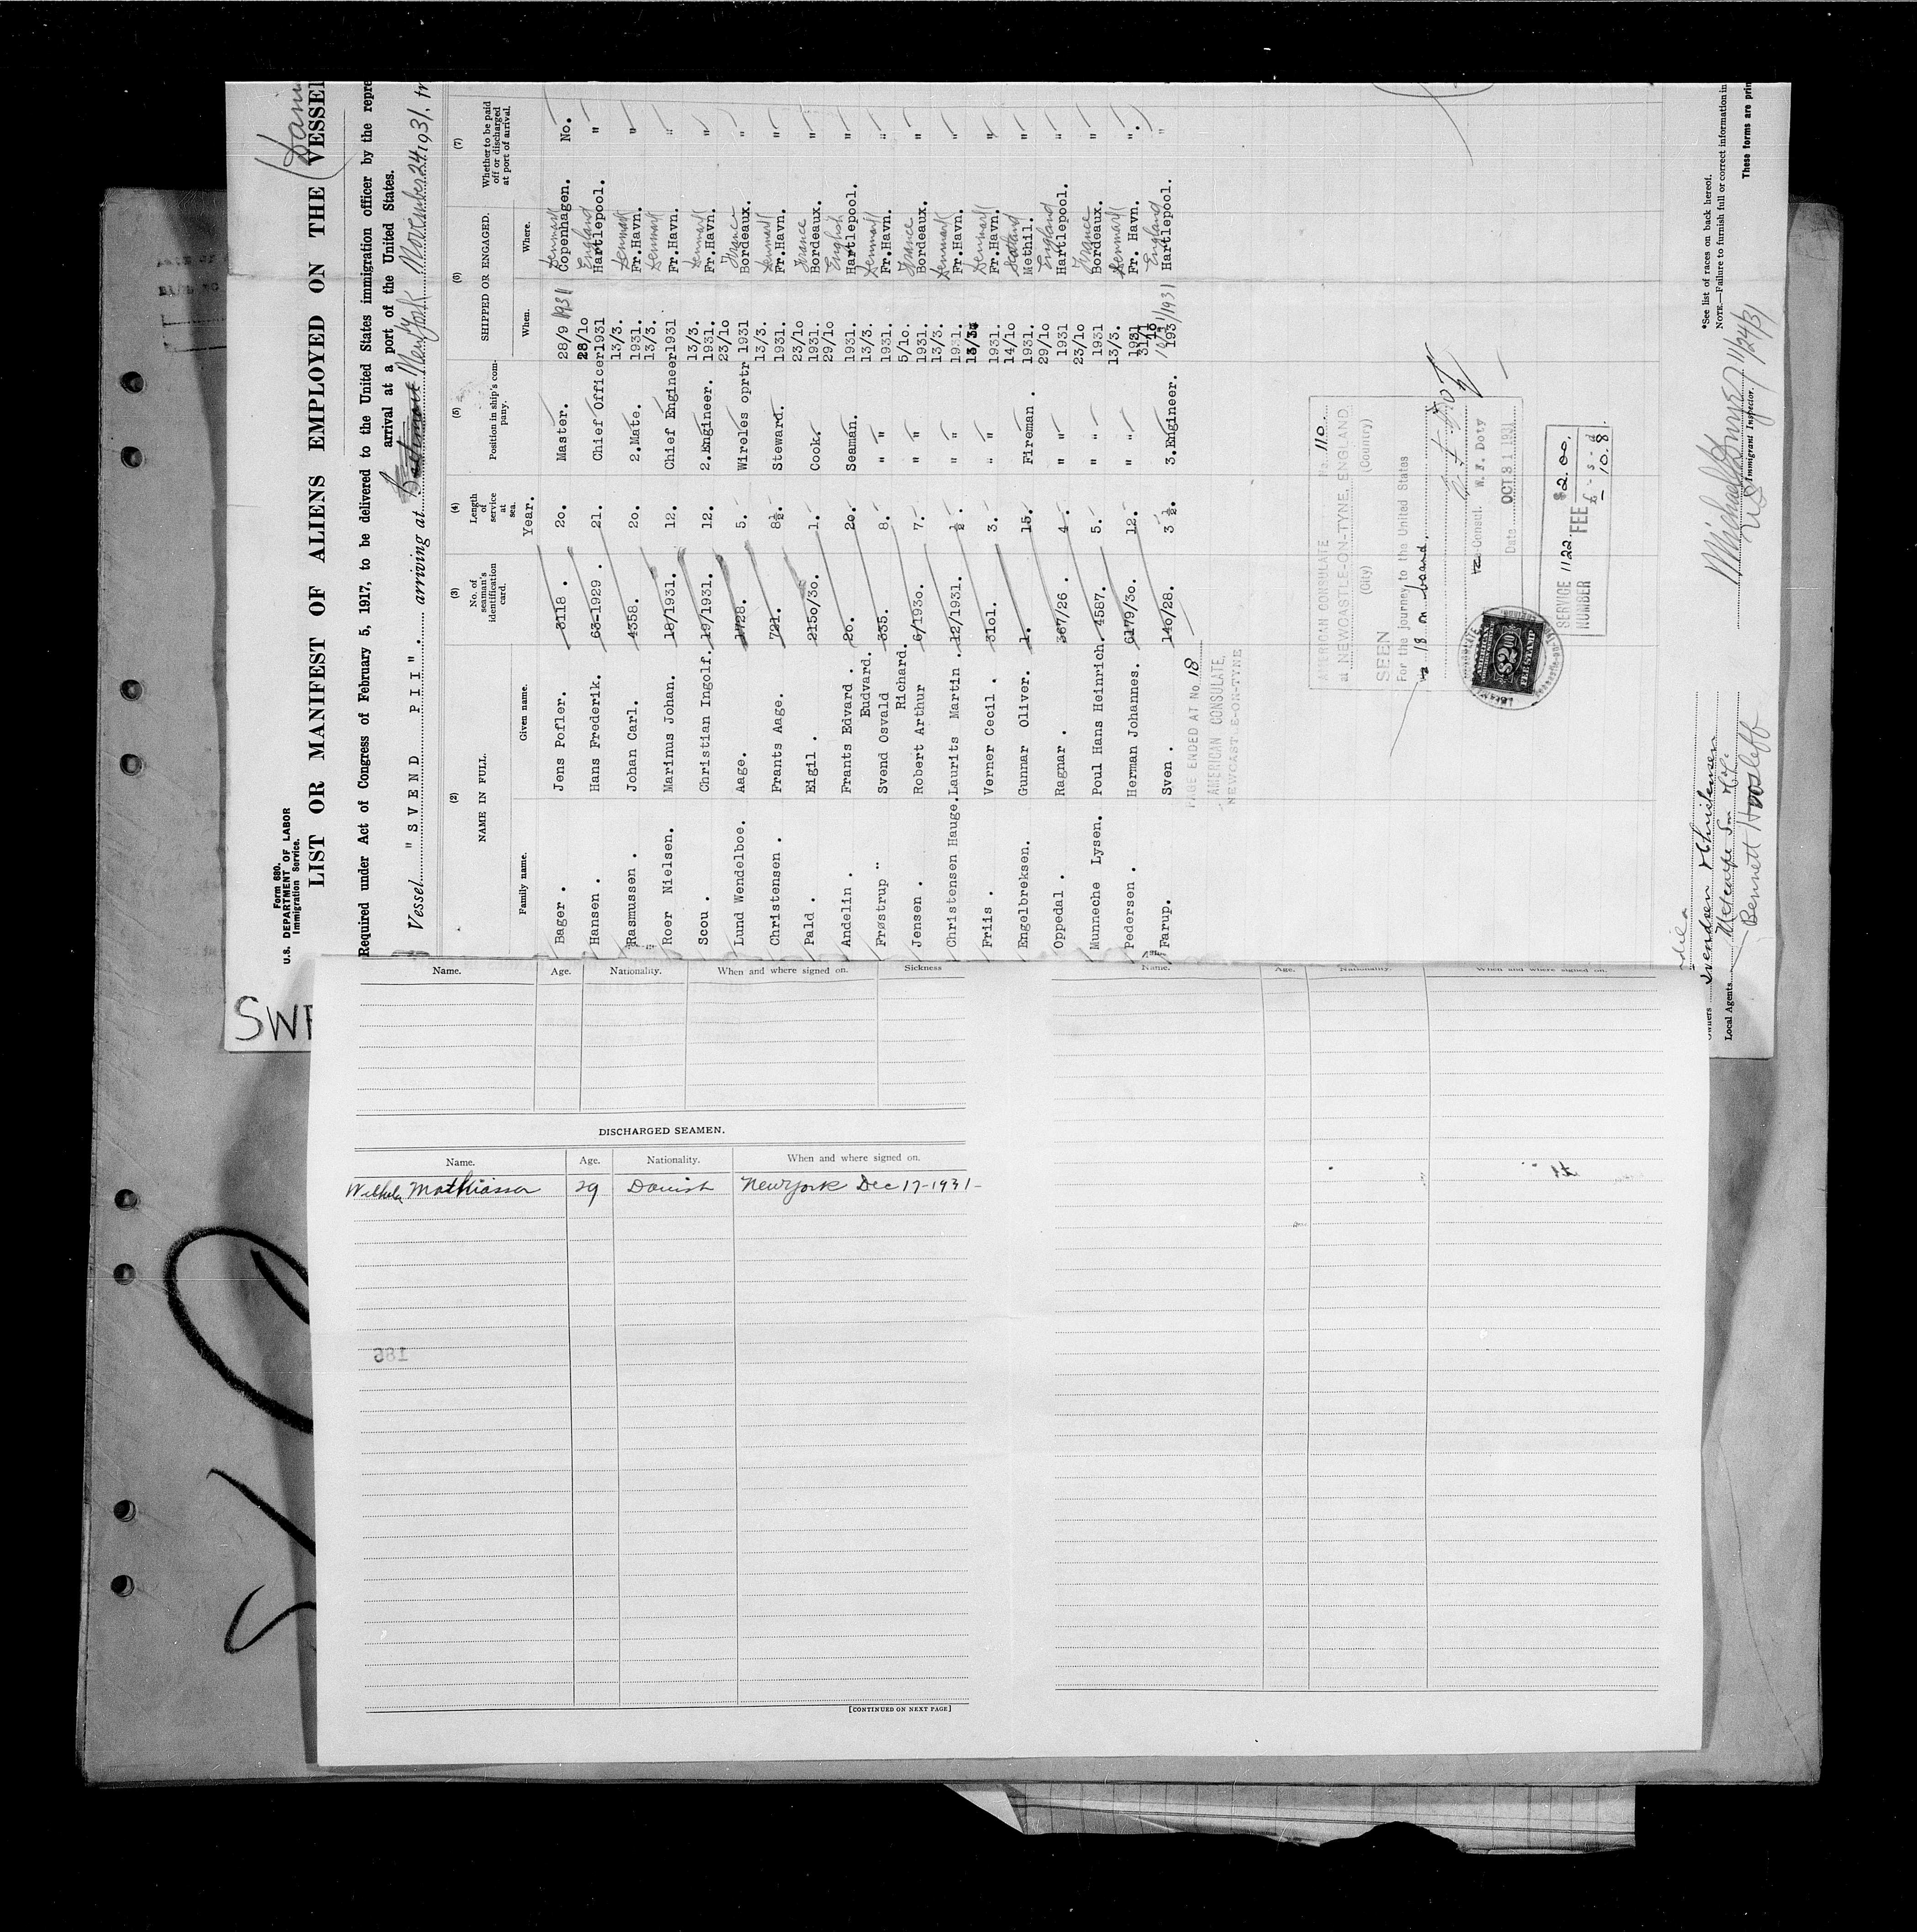 Form 680.
U.S. DEPARTMENT OF LABOR
Immigration Service.
LIST OR MANIFEST OF ALIENS EMPLOYED ON THE VESSEL
Required under Act of Congress of February 5, 1917, to be delivered to the United States immigration officer by the repre
arrival at a port of the United States.
Vessel "SVEND PII". arriving at New York November 24 1931, fr
(2) (3) (4) (5) (6) (7)
NAME IN FULL. No. of seaman's identification card. Length of service at sea. Position in ship's company. SHIPPED OR ENGAGED. Whether to be paid off or discharged at port of arrival.
Family name. Given name. Year. When. Where.
Bager . Jens Pofler. 3118 . 20. Master. 28/9 1931 Denmark Copenhagen. No.
Hansen . Hans Frederik. 63-1929 . 21. Chief Officer 28/10 1931 England Hartlepool. "
Rasmussen . Johan Carl. 4358. 20. 2.Mate. 13/3. 1931. Denmark Fr.Havn. "
Roer Nielsen. Marinus Johan. 18/1931. 12. Chief Engineer 13/3. 1931 Denmark Fr.Havn. "
Scou . Christian Ingolf. 19/1931. 12. 2.Engineer. 13/3. 1931. Denmark Fr.Havn. "
Lund Wendelboe. Aage. 1728. 5. Wireles oprtr 23/10 1931 France Bordeaux. "
Christensen . Frants Aage. 721. 8½. Steward. 13/3. 1931. Denmark Fr.Havn. "
Pald . Eigil . 2150/30. 1. Cook. 23/10 1931. France Bordeaux. "
Andelin . Frants Edvard . 20. 20. Seaman. 29/10 1931. English Hartlepool. "
Frøstrup Svend Osvald Eudvard. 335. 8. " " 13/3. 1931. Denmark Fr.Havn. "
Jensen . Robert Arthur Richard. 6/1930. 7. " " 5/10. 1931. France Bordeaux. "
Christensen Hauge. Laurits Martin . 12/1931. ½ . " " 13/3. 1931. Denmark Fr.Havn. "
Friis . Verner Cecil . 3101. 3. " " 13/3. 1931. Denmark Fr.Havn. "
Engelbreksen. Gunnar Oliver. 1. 15. Fireman . 14/10 1931. Scotland Methil. "
Oppedal . Ragnar . 367/26 . 4 . " " 29/10 1931 England Hartlepool. "
Munneche Lysen. Poul Hans Heinrich. 4587. 5. " " 23/10 1931 France Bordeaux. "
Pedersen . Herman Johannes. 6179/30. 12. " " 13/3. 1931 Denmark Fr. Havn. "
Farup. Sven . 140/28. 3 ½. 3.Engineer. 1931 England Hartlepool. "
PAGE ENDED AT No. 18
AMERICAN CONSULATE,
NEWCASTLE-ON-TYNE
AMERICAN CONSULATE No. 110
at NEWCASTLE-ON-TYNE, ENGLAND
(City) (Country)
SEEN
For the journey to the United States
18 on board.
Consul. W. F. Doty
Date OCT 31 1931
SERVICE NUMBER 1122 FEE $2.00.
£ - s - d
- 10.8.
$2.00
FEE STAMP
*See list of races on back hereof.
NOTE.—Failure to furnish full or correct information in
These forms are prin
Owners Svendsen & Christensen
Local Agents
Bennett Hvoslef
11/24/31
Immigrant Inspector.
Name. Age. Nationality. When and where signed on. Sickness
Name. Age. Nationality. When and where signed on.
DISCHARGED SEAMEN.
Name. Age. Nationality. When and where signed on.
Wilhelm Mathiassen 29 Danish New York Dec 17-1931-
[CONTINUED ON NEXT PAGE]